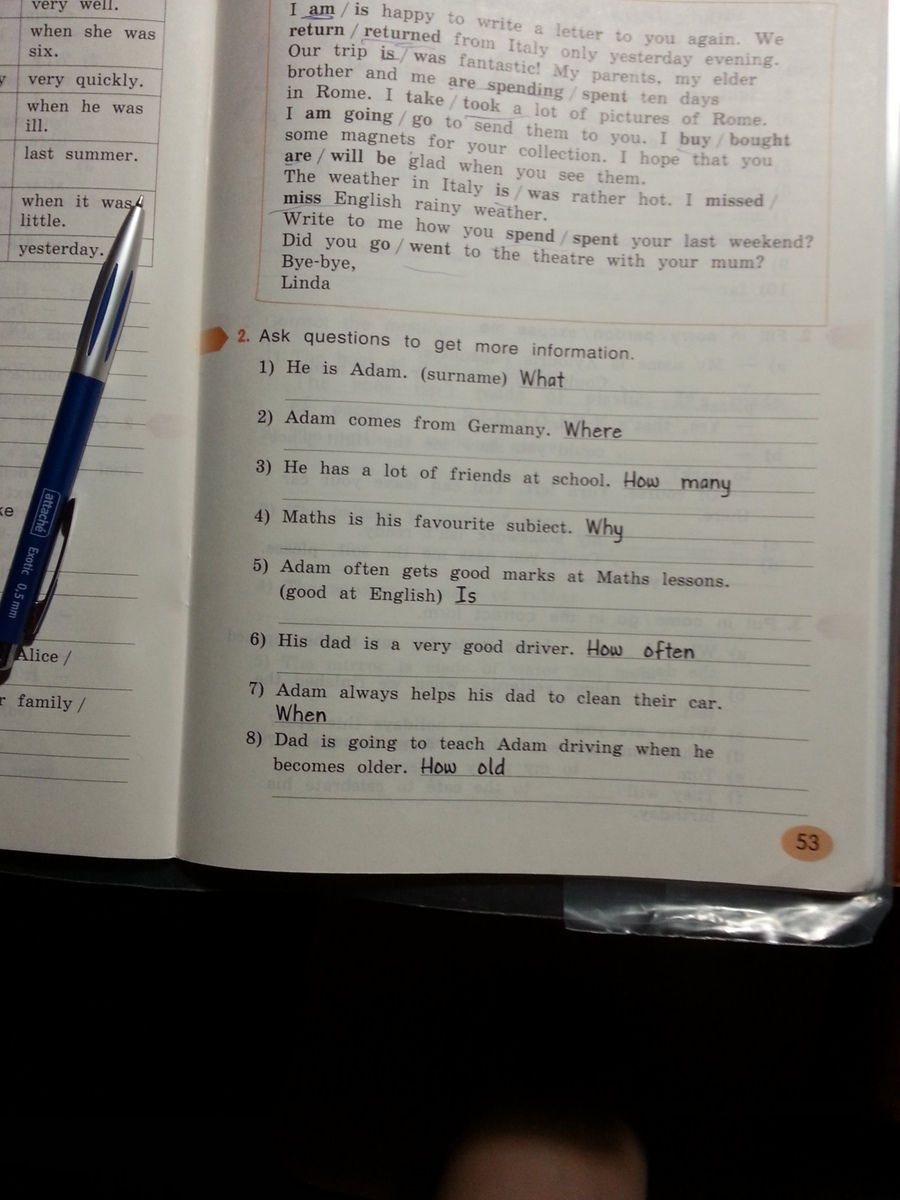 very well.
when she was
six.
y very quickly.
when he was
ill.
last summer.
when it was
little.
yesterday.
ke
Alice /
r family /
attaché Exotic 0,5 mm
I am / is happy to write a letter to you again. We
return / returned from Italy only yesterday evening.
Our trip is / was fantastic! My parents, my elder
brother and me are spending / spent ten days
in Rome. I take / took a lot of pictures of Rome.
I am going / go to send them to you. I buy / bought
some magnets for your collection. I hope that you
are / will be glad when you see them.
The weather in Italy is / was rather hot. I missed /
miss English rainy weather.
Write to me how you spend / spent your last weekend?
Did you go / went to the theatre with your mum?
Bye-bye,
Linda
2. Ask questions to get more information.
1) He is Adam. (surname) What
2) Adam comes from Germany. Where
3) He has a lot of friends at school. How many
4) Maths is his favourite subiect. Why
5) Adam often gets good marks at Maths lessons.
(good at English) Is
6) His dad is a very good driver. How often
7) Adam always helps his dad to clean their car.
When
8) Dad is going to teach Adam driving when he
becomes older. How old
53